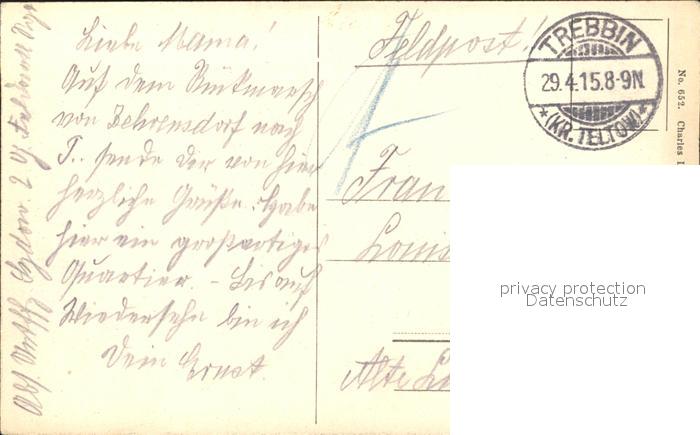 Liebe Mama!
Auf dem Rückmarsch
von Zehrensdorf nach
T.. sende Dir von hier
herzliche Grüße. Habe
hier ein großartiges
Quartier. – Bis auf
Wiedersehn bin ich
Dein Ernst.
Feldpost!
TREBBIN
29.4.15.8-9N.
*(KR. TELTOW)*
Frau
Louis
Alte
No. 652. Charles
privacy protection
Datenschutz